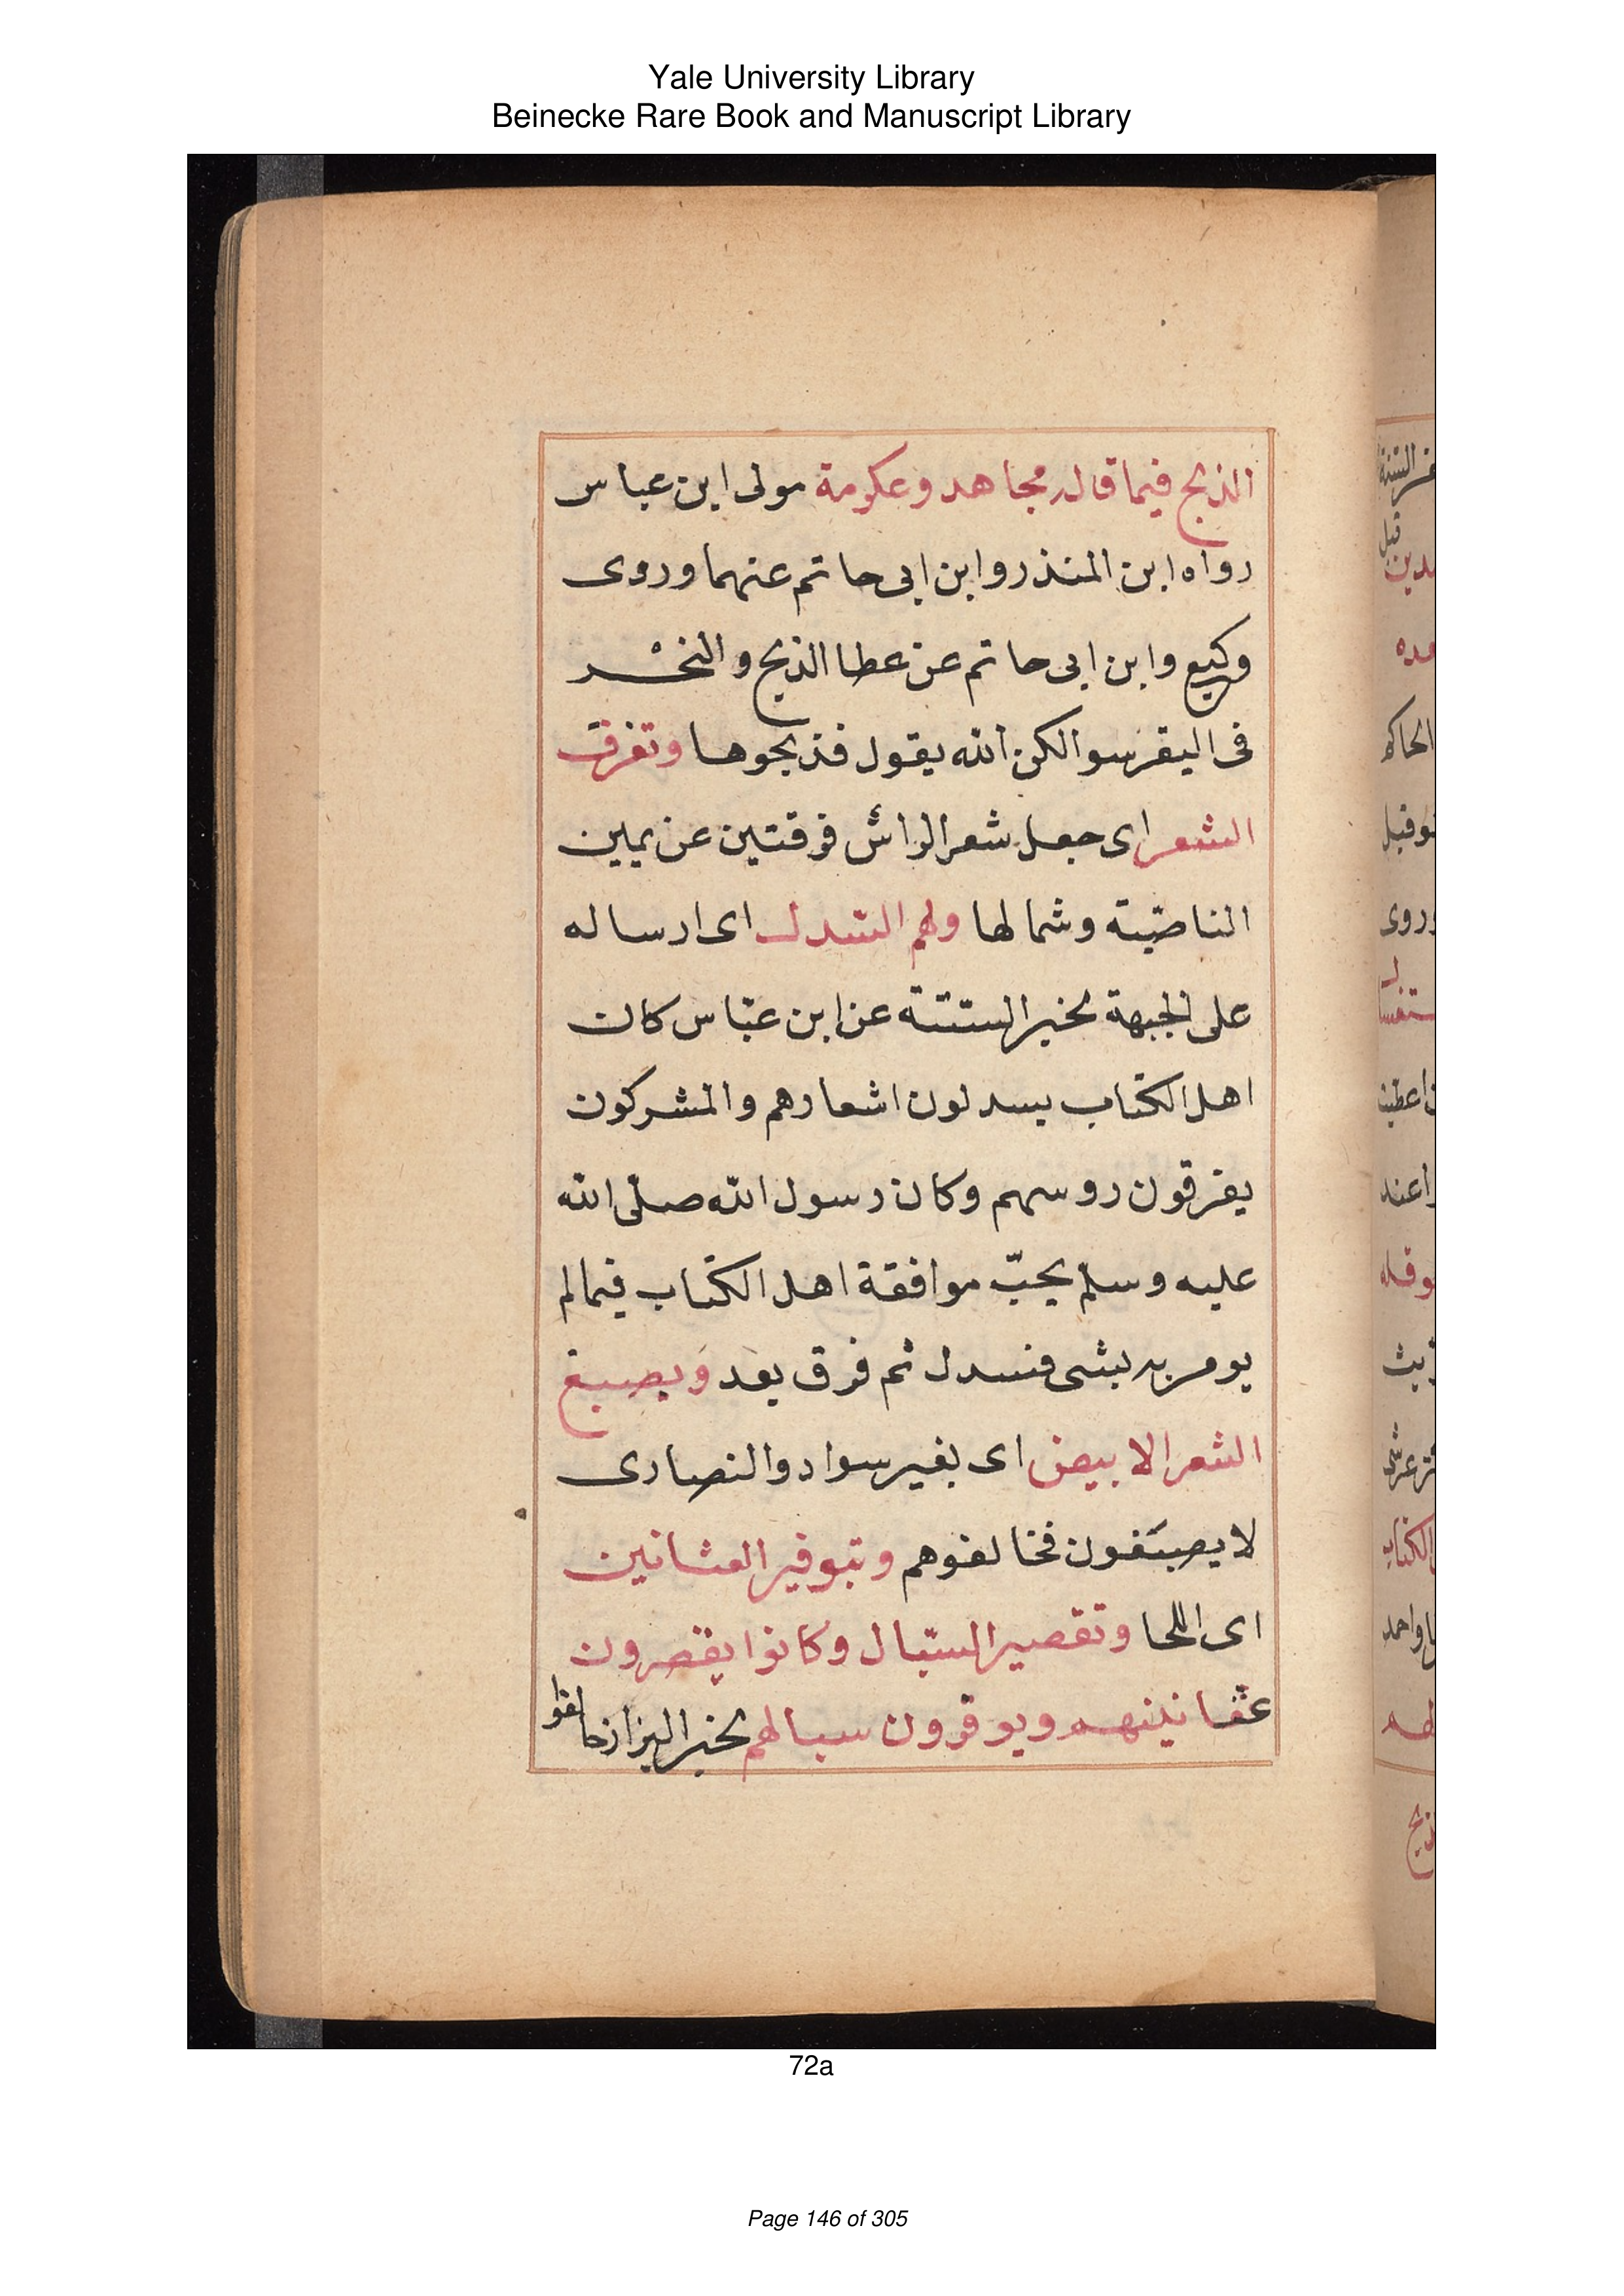 Yale University Library
Beinecke Rare Book and Manuscript Library
الذبح فيما قاله مجاهد وعكرمة مولى ابن عباس
رواه ابن المنذر وابن ابى حاتم عنهما وروى
وكيع وابن ابى حاتم عن عطا الذبح والنحر
فى البقر سوا لكن الله يقول فذبحوها وتفرق
الشعر اى جعل شعر الراس فرقتين عن يمين
الناصية وشمالها ولهم السدل اى ارساله
على الجبهة لخبر الستة عن ابن عباس كان
اهل الكتاب يسدلون اشعارهم والمشركون
يفرقون روسهم وكان رسول الله صلى الله
عليه وسلم يحبّ موافقة اهل الكتاب فيما لم
يومر به بشى فسدل ثم فرق بعد وبصبغ
الشعر الابيض اى بغير سواد والنصارى
لا يصبغون فخالفوهم وتبوفير العثانين
اى اللحا وتقصير السبال وكانوا يقصرون
عثانينهم ويوفرون سبالهم لخبر البزار خالفوا
72a
Page 146 of 305